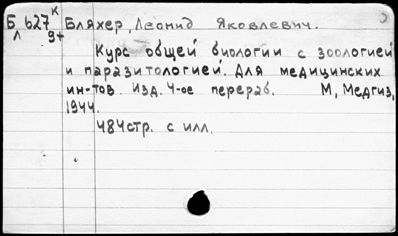 Б 627 к Бляхер, Леонид Яковлевич.
л 9+
Курс общей биологии с зоологией
и паразитологией. Для медицинских
ин-тов. Изд. 4-ое перераб. М, Медгиз,
1944.
484стр. с илл.